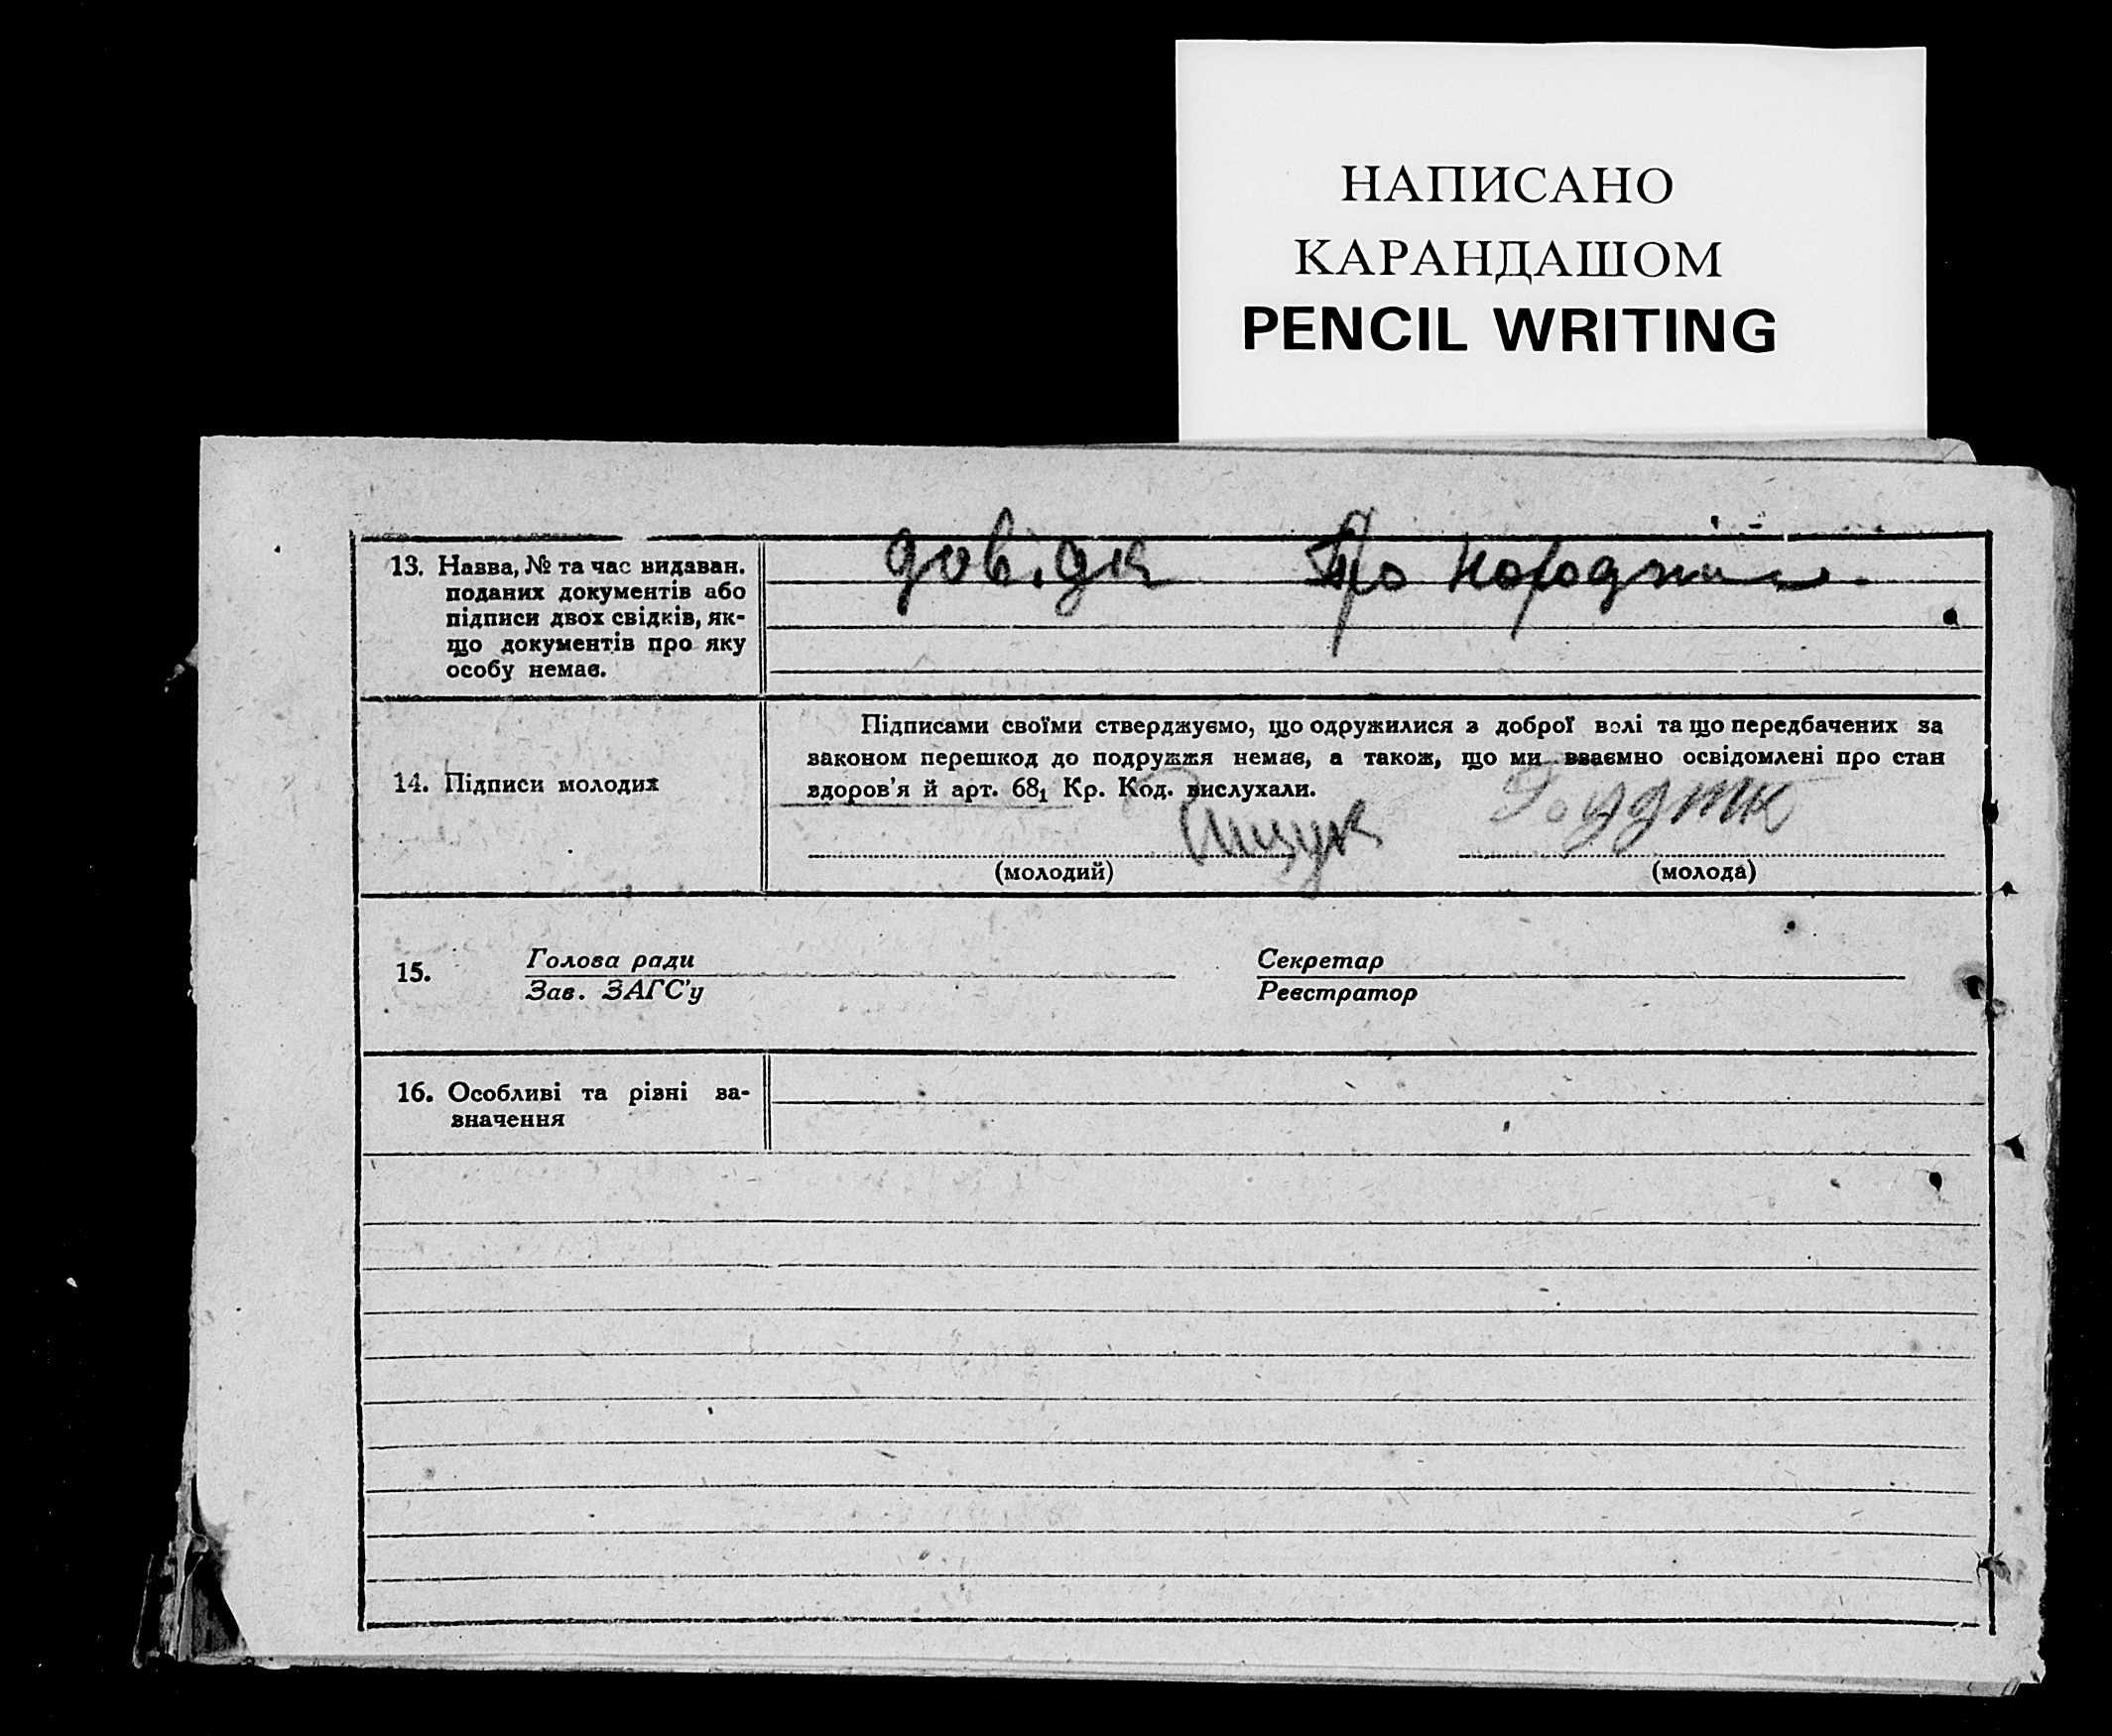 НАПИСАНО
КАРАНДАШОМ
PENCIL WRITING
довідк про
13. Назва, № та час видаван.
поданих документів або
підписи двох свідків, як-
що документів про яку
особу немає.
Підписами своїми стверджуємо, що одружилися з доброї волі та що передбачених за
законом перешкод до подружжя немає, а також, що ми взаємно освідомлені про стан
здоров'я й арт. 68₁ Кр. Код. вислухали.
14. Підписи молодих
Пищук
(молодий) (молода)
15. Голова ради Секретар
Зав. ЗАГС'у Реєстратор
16. Особливі та різні за-
значення